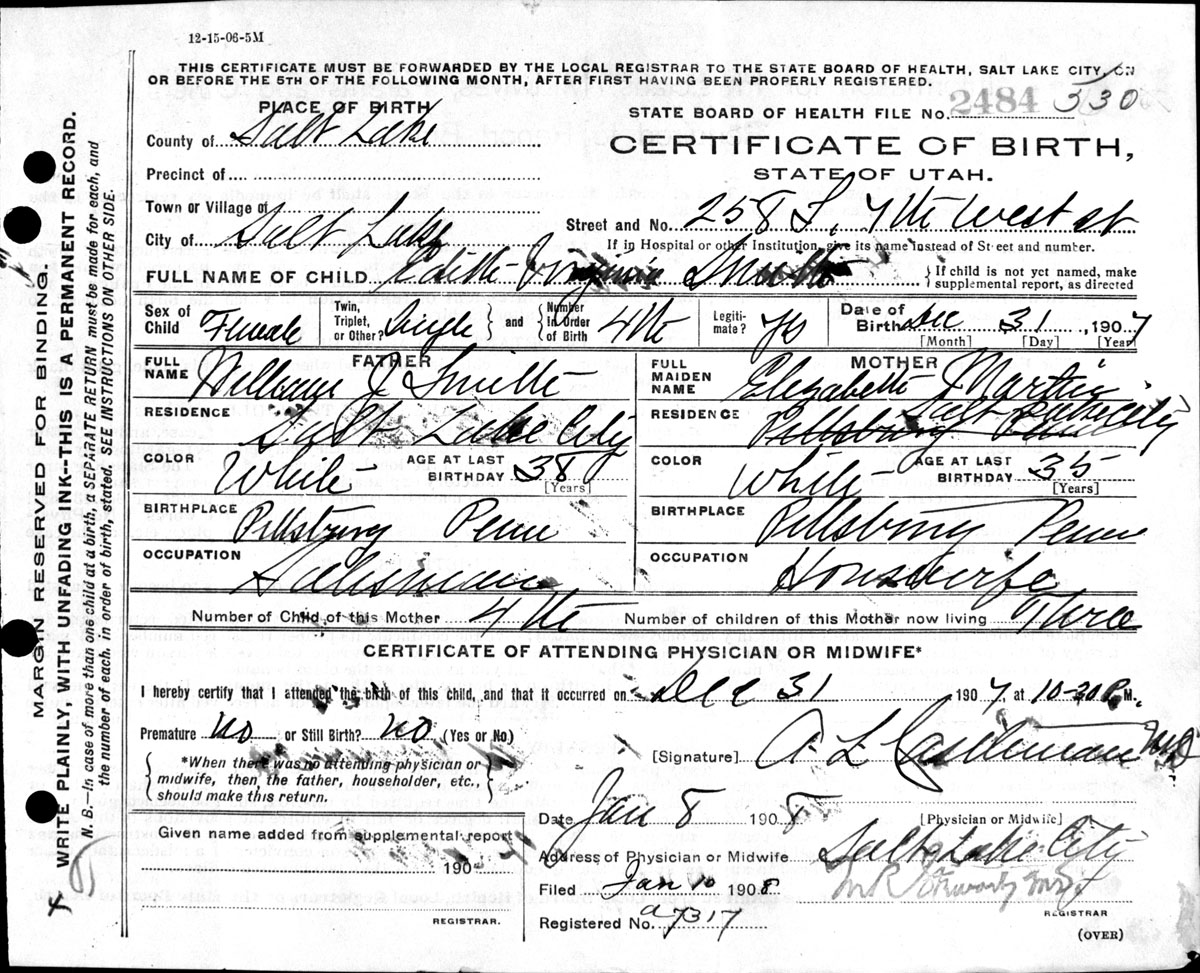 12-15-06-5M
THIS CERTIFICATE MUST BE FORWARDED BY THE LOCAL REGISTRAR TO THE STATE BOARD OF HEALTH, SALT LAKE CITY, ON
OR BEFORE THE 5TH OF THE FOLLOWING MONTH, AFTER FIRST HAVING BEEN PROPERLY REGISTERED.
PLACE OF BIRTH
STATE BOARD OF HEALTH FILE NO. 2484 330
County of Salt Lake
CERTIFICATE OF BIRTH,
STATE OF UTAH.
Precinct of
Town or Village of
Street and No. 258 S, 7th West st
City of Salt Lake
If in Hospital or other Institution, give its name instead of Street and number.
FULL NAME OF CHILD Edith Virginia Smith
If child is not yet named, make
supplemental report, as directed
Sex of Child Female
Twin, Triplet, or Other? Single and Number in Order of Birth 4th
Legitimate? Yes
Date of Birth Dec 31, 1907
[Month] [Day] [Year]
FATHER
FULL NAME William J Smith
RESIDENCE Salt Lake City
COLOR White AGE AT LAST BIRTHDAY 38 [Years]
BIRTHPLACE Pittsburg Penn
OCCUPATION Salesman
MOTHER
FULL MAIDEN NAME Elizabeth J Martin
RESIDENCE Pittsburg Penn Salt Lake City
COLOR White AGE AT LAST BIRTHDAY 35 [Years]
BIRTHPLACE Pittsburg Penn
OCCUPATION Housewife
Number of Child of this Mother 4th Number of children of this Mother now living Three
CERTIFICATE OF ATTENDING PHYSICIAN OR MIDWIFE*
I hereby certify that I attended the birth of this child, and that it occurred on Dec 31 1907, at 10-30 P.M.
Premature No or Still Birth? No (Yes or No)
*When there was no attending physician or
midwife, then the father, householder, etc.,
should make this return.
[Signature] A L MD
[Physician or Midwife]
Date Jan 8 1908
Address of Physician or Midwife Salt Lake City
Given name added from supplemental report
190
REGISTRAR.
Filed Jan 10 1908
REGISTRAR
Registered No. a7317
(OVER)
MARGIN RESERVED FOR BINDING.
WRITE PLAINLY, WITH UNFADING INK--THIS IS A PERMANENT RECORD.
N. B.—In case of more than one child at a birth, a SEPARATE RETURN must be made for each, and
the number of each, in order of birth, stated. SEE INSTRUCTIONS ON OTHER SIDE.